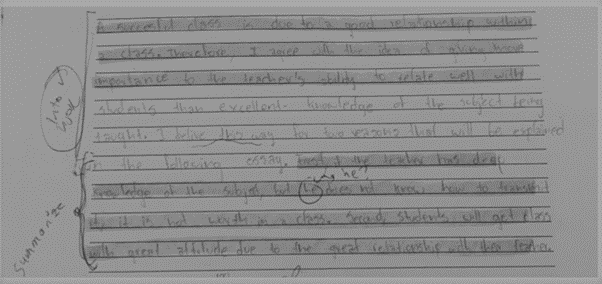 A successful class is due to a good relationship within
a class. Therefore, I agree with the idea of giving more
importance to the teacher's ability to relate well with
students than excellent knowledge of the subject being
taught. I belive this way for two reasons that will be explained
in the following essay. First, if the teacher has deep
who he?
knowledge of the subject, but he does not know how to transmit
it, it is not worth in a class. Second, students will get class
with great attitude due to the great relationship with their teacher.
Summarize